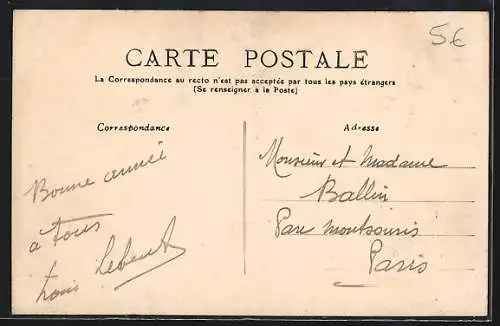 5€
CARTE POSTALE
La Correspondance au recto n'est pas acceptée par tous les pays étrangers
(Se renseigner à la Poste)
Correspondance
Adresse
Bonne année
à tous
trois Lebeut
Monsieur et Madame
Ballin
Parc Montsouris
Paris